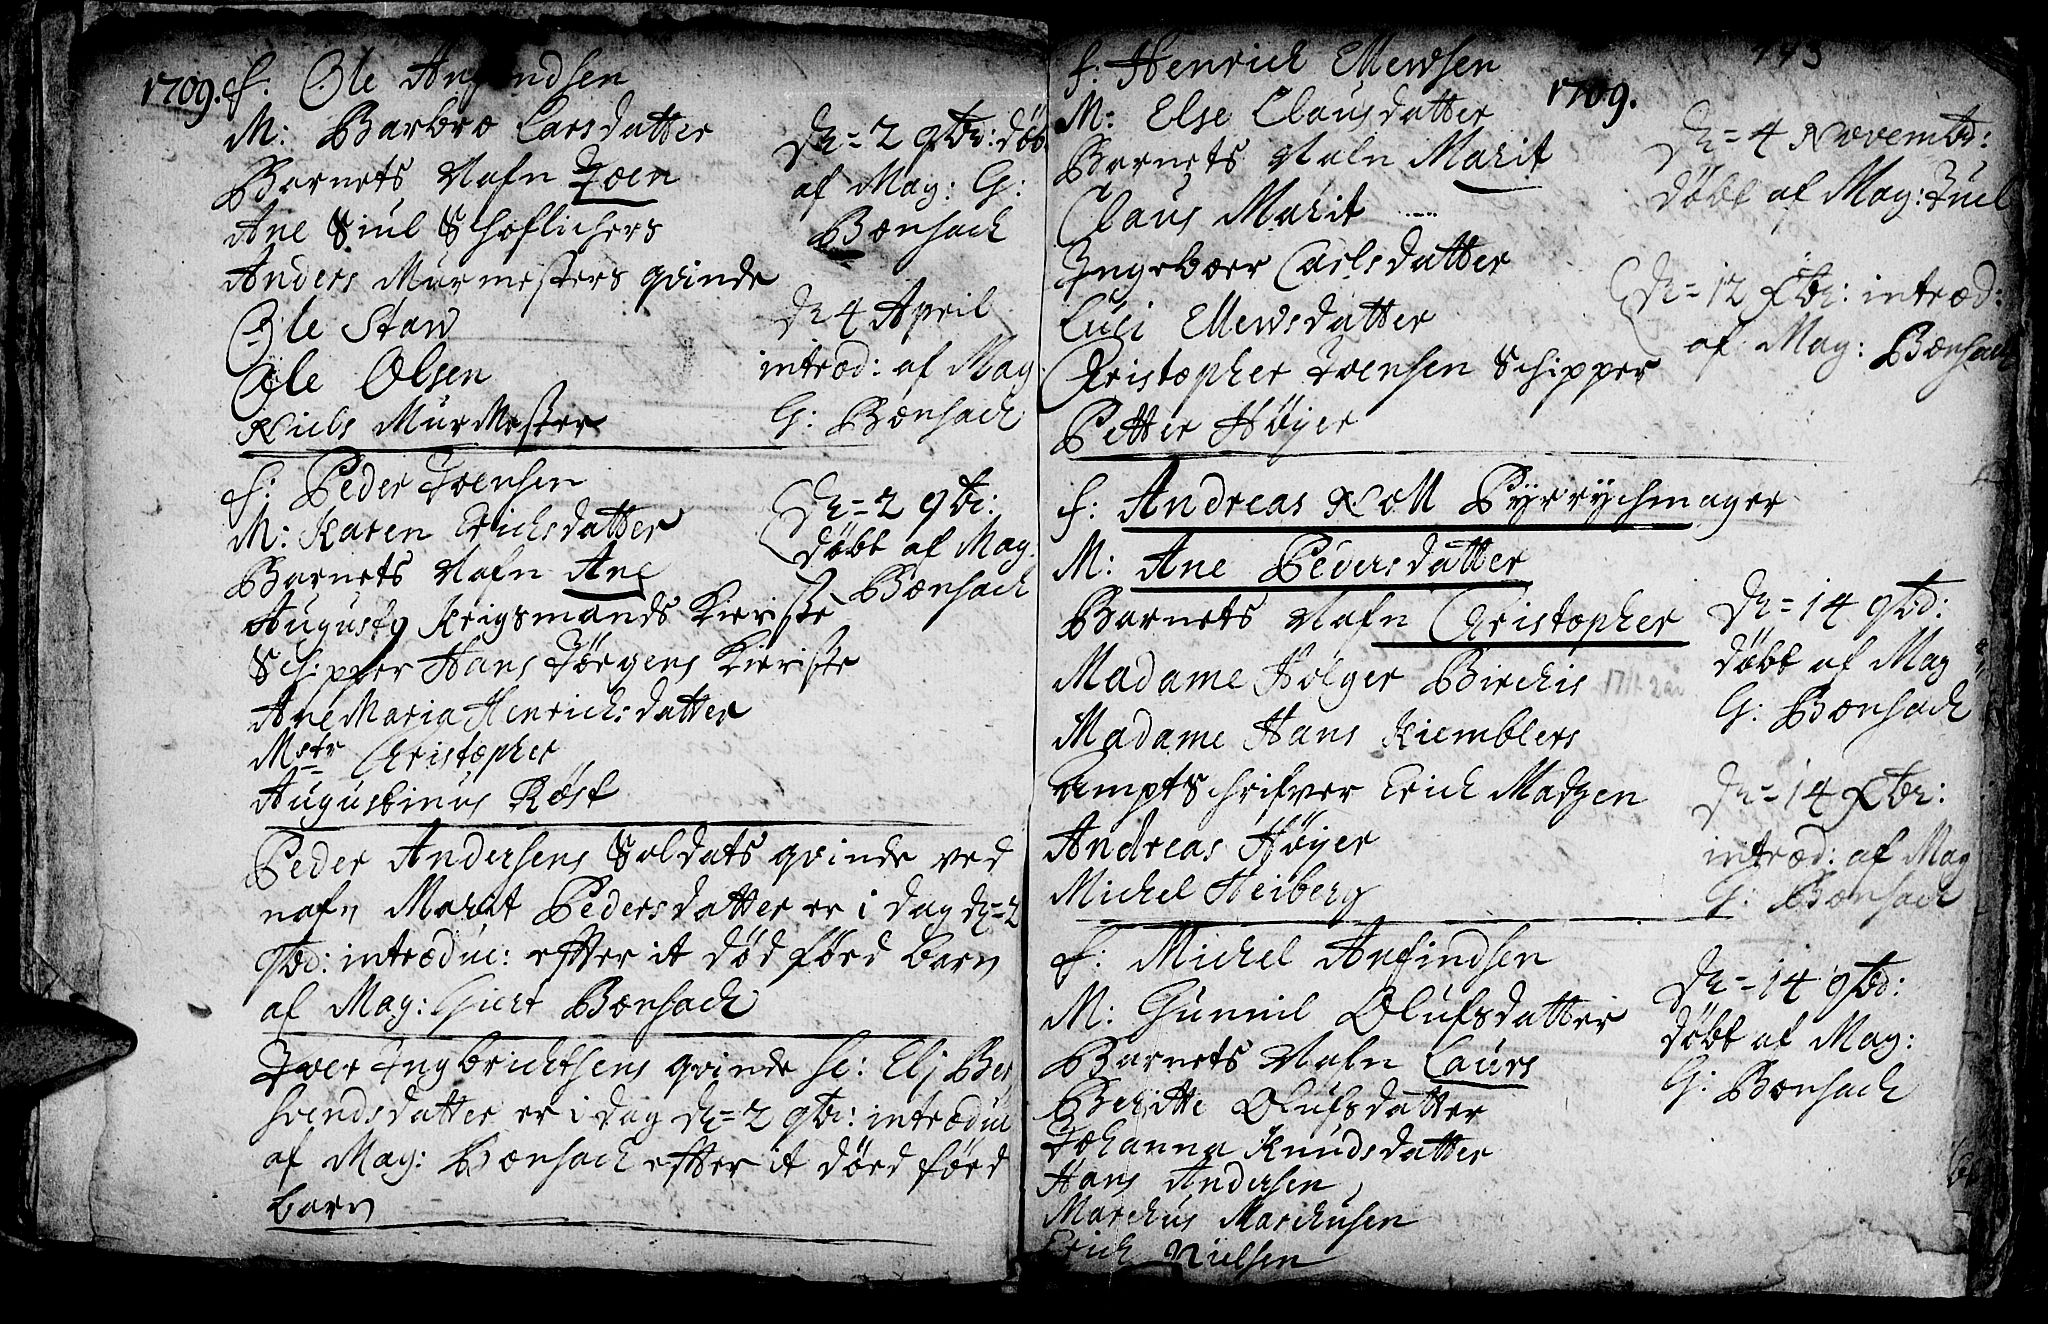 1709. f: Ole Amundsen
M: Barbro Larsdatter
Barnets Nafn Joen
Ane Siul Schoflichers
Anders Murmesters qvinde
Ole Staw
Ole Olsen
Niels MurMester
D=2 9br: döb
af Mag: G:
Bonsach
D 4 April
introd: af Mag
G: Bonsach
f: Peder Joensen
M: Karen Erichsdatter
Barnets Nafn Ane
August9 Krigsmands Kieriste
Schipper Hans Jörgens Kieriste
Ane Maria Henrichsdatter
Mstr Christopher
Augustinus Röst
D=2 9br:
döbt af Mag:
Bonsach
Peder Andersens Soldats qvinde ved
nafn Marit Pedersdatter er i dag d=2
9bd: introdu: effter it död förd barn
af Mag: Giert Bonsach
Iver Ingbrichtsens qvinde sc: Elj Ber
svendsdatter er i dag d=2 9br: introdu
af Mag: Bonsach effter it dörd förd
barn
143
f: Henrich Mewsen
1709.
M: Else Clausdatter
Barnets Nafn Marit
Claus Marit
Ingeboer Carlsdatter
Luci Mewsdatter
Christopher Joensen Schipper
Petter Höyer
D=4 Novembr:
döbt af Mag: Juel
D=12 Xbr: introd:
af Mag: Bonsach
f: Andreas Noll Pÿrrÿchmager
M: Ane Pedersdatter
Barnets Nafn Christopher
Madame Holger Birchis
Madame Hans Kiemblers
Amptschrifver Erich Madzen
Andreas Höyer
Michel Heiberg
D=14 9bd:
döbt af Mag
G: Bonsach
D=14 Xbr:
introd: af Mag
G: Bonsach
f: Michel Anfindsen
M: Gunnil Olufsdatter
Barnets Nafn Laurs
Beritte Olufsdatter
Johanna Knudsdatter
Hans Andersen
Marchus Marchusen
Erich Nielsen
D=14 9bd:
döbt af Mag:
G: Bonsach